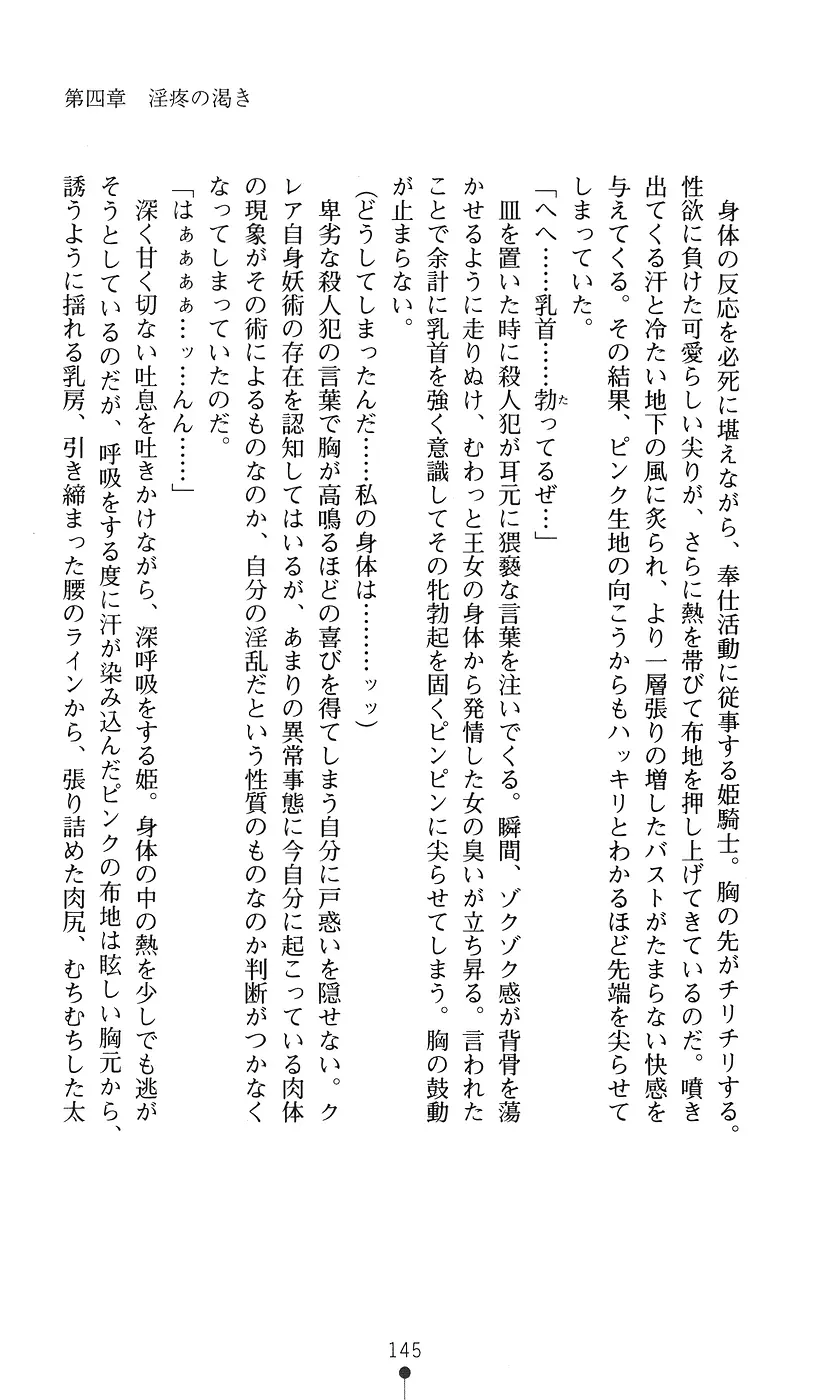 第四章　淫疼の渇き
　身体の反応を必死に堪えながら、奉仕活動に従事する姫騎士。胸の先がチリチリする。
性欲に負けた可愛らしい尖りが、さらに熱を帯びて布地を押し上げてきているのだ。噴き
出てくる汗と冷たい地下の風に炙られ、より一層張りの増したバストがたまらない快感を
与えてくる。その結果、ピンク生地の向こうからもハッキリとわかるほど先端を尖らせて
しまっていた。
「へへ……乳首……勃ってるぜ…」
た
　皿を置いた時に殺人犯が耳元に猥褻な言葉を注いでくる。瞬間、ゾクゾク感が背骨を蕩
かせるように走りぬけ、むわっと王女の身体から発情した女の臭いが立ち昇る。言われた
ことで余計に乳首を強く意識してその牝勃起を固くピンピンに尖らせてしまう。胸の鼓動
が止まらない。
（どうしてしまったんだ……私の身体は………ッッ）
　卑劣な殺人犯の言葉で胸が高鳴るほどの喜びを得てしまう自分に戸惑いを隠せない。ク
レア自身妖術の存在を認知してはいるが、あまりの異常事態に今自分に起こっている肉体
の現象がその術によるものなのか、自分の淫乱だという性質のものなのか判断がつかなく
なってしまっていたのだ。
「はぁぁぁぁ…ッ…んん……」
　深く甘く切ない吐息を吐きかけながら、深呼吸をする姫。身体の中の熱を少しでも逃が
そうとしているのだが、呼吸をする度に汗が染み込んだピンクの布地は眩しい胸元から、
誘うように揺れる乳房、引き締まった腰のラインから、張り詰めた肉尻、むちむちした太
145